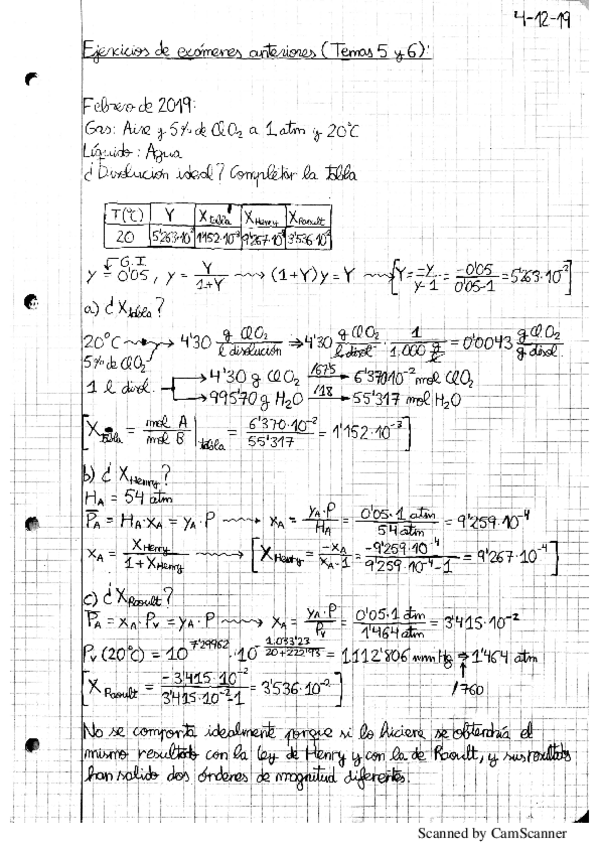 4-12-19
Ejercicios de exámenes anteriores (Temas 5 y 6):
Febrero de 2019:
Gas: Aire y 5% de ClO₂ a 1 atm y 20°C
Líquido: Agua
¿Disolución ideal? Completar la tabla
T(°C) Y X tabla X Henry X Raoult
20 5'263·10⁻² 1'152·10⁻³ 9'267·10⁻⁴ 3'536·10⁻²
G.I
y = 0'05, y = Y/(1+Y) ⟿ (1+Y)y = Y ⟿ [Y = -y/(y-1) = -0'05/(0'05-1) = 5'263·10⁻²]
a) ¿X tabla?
20°C → 4'30 g ClO₂/l disolución ⇒ 4'30 g ClO₂/l disol · 1/(1.000 g/l) = 0'0043 g ClO₂/g disol.
5% de ClO₂
1 l disol. → 4'30 g ClO₂ /67'5 → 6'370·10⁻² mol ClO₂
→ 995'70 g H₂O /18 → 55'317 mol H₂O
[X tabla = mol A/mol B | tabla = 6'370·10⁻²/55'317 = 1'152·10⁻³]
b) ¿X Henry?
H_A = 54 atm
P̄_A = H_A·x_A = y_A·P ⟿ x_A = y_A·P/H_A = 0'05·1 atm/54 atm = 9'259·10⁻⁴
x_A = X Henry/(1+X Henry) ⟿ [X Henry = -x_A/(x_A-1) = -9'259·10⁻⁴/(9'259·10⁻⁴-1) = 9'267·10⁻⁴]
c) ¿X Raoult?
P̄_A = x_A·P_v = y_A·P ⟿ x_A = y_A·P/P_v = 0'05·1 atm/1'464 atm = 3'415·10⁻²
P_v (20°C) = 10^7'29962 · 10^ = 1.112'806 mmHg ⇒ 1'464 atm
/760
[X Raoult = -3'415·10⁻²/(3'415·10⁻²-1) = 3'536·10⁻²]
No se comporta idealmente porque si lo hiciere se obtendría el
mismo resultado con la ley de Henry y con la de Raoult, y sus resultados
han salido dos órdenes de magnitud diferentes.
Scanned by CamScanner